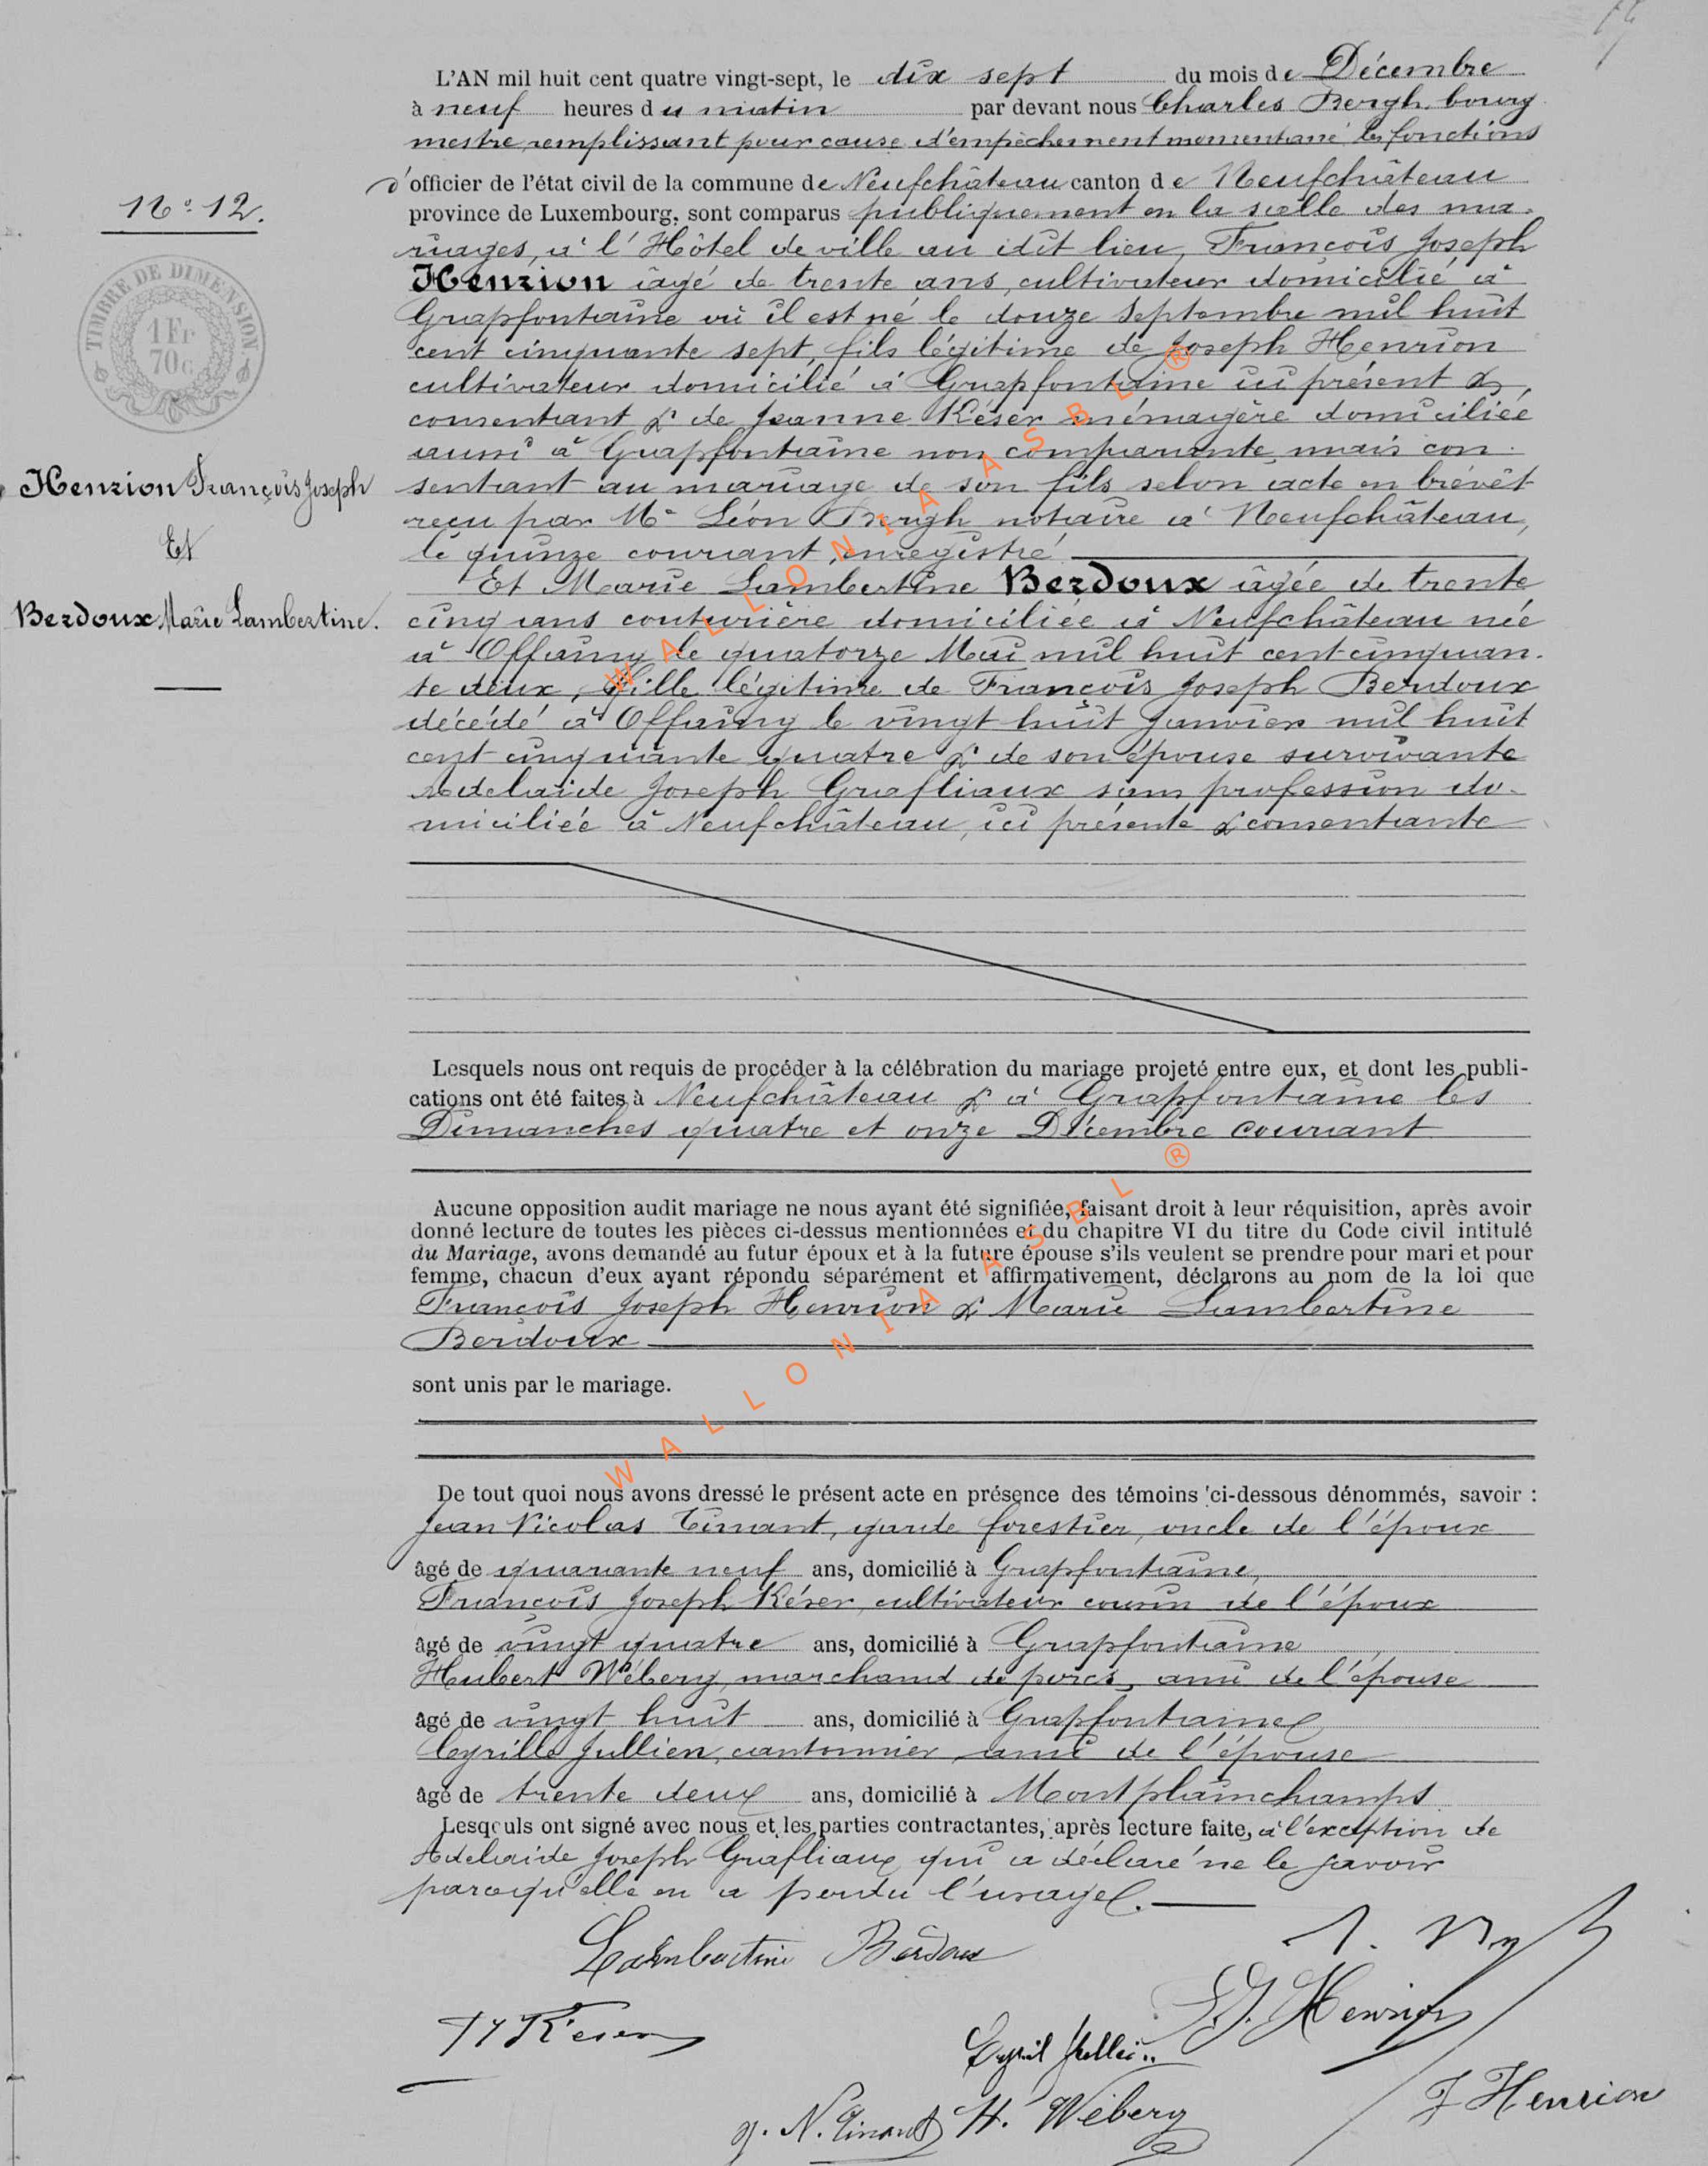 L'AN mil huit cent quatre vingt-sept, le dix sept du mois de Décembre
à neuf heures du matin par devant nous Charles Bergh, bourg
mestre remplissant pour cause d'empèchement momentané les fonctions
d'officier de l'état civil de la commune de Neufchâteau canton de Neufchâteau
province de Luxembourg, sont comparus publiquement en la salle des ma-
riages, à l'Hôtel de ville au dit lieu, François Joseph
Henrion âgé de trente ans, cultivateur domicilié à
Grapfontaine où il est né le douze Septembre mil huit
cent cinquante sept, fils légitime de Joseph Henrion
cultivateur domicilié à Grapfontaine ici présent &
consentant & de Jeanne Késer ménagère domiciliée
aussi à Grapfontaine non comparante mais con-
sentant au mariage de son fils selon acte en brévêt
reçu par Me Léon Bergh notaire à Neufchâteau,
le quinze courant, enregistré
Et Marie Lambertine Berdoux âgée de trente
cinq ans couturière domiciliée à Neufchâteau née
à Offaing le quatorze Mai mil huit cent cinquan-
te deux, fille légitime de François Joseph Berdoux
décédé à Offaing le vingt huit Janvier mil huit
cent cinquante quatre & de son épouse survivante
Adelaide Joseph Grafliaux sans profession do-
miciliée à Neufchâteau, ici présente & consentante
No 12.
TIMBRE DE DIMENSION
1 Fr
70 c.
Henrion François Joseph
Et
Berdoux Marie Lambertine.
Lesquels nous ont requis de procéder à la célébration du mariage projeté entre eux, et dont les publi-
cations ont été faites à Neufchâteau & à Grapfontaine les
Dimanches quatre et onze Décembre courant
Aucune opposition audit mariage ne nous ayant été signifiée, faisant droit à leur réquisition, après avoir
donné lecture de toutes les pièces ci-dessus mentionnées et du chapitre VI du titre du Code civil intitulé
du Mariage, avons demandé au futur époux et à la future épouse s'ils veulent se prendre pour mari et pour
femme, chacun d'eux ayant répondu séparément et affirmativement, déclarons au nom de la loi que
François Joseph Henrion & Marie Lambertine
Berdoux
sont unis par le mariage.
De tout quoi nous avons dressé le présent acte en présence des témoins ci-dessous dénommés, savoir :
Jean Nicolas Tinant, garde forestier, oncle de l'époux
âgé de quarante neuf ans, domicilié à Grapfontaine,
François Joseph Késer, cultivateur cousin de l'époux
âgé de vingt quatre ans, domicilié à Grapfontaine
Hubert Wébery, marchand de porcs, ami de l'épouse
âgé de vingt huit ans, domicilié à Grapfontaine
Cyrille Jullien, cantonnier ami de l'épouse
âgé de trente deux ans, domicilié à Montplainchamps
Lesquels ont signé avec nous et les parties contractantes, après lecture faite, à l'exception de
Adelaide Joseph Grafliaux qui a déclaré ne le savoir
parcequ'elle en a perdu l'usage.
Lambertine Berdoux
F J Késer
F. J. Henrion
Cyril Jullien
J. N. Tinant H. Wébery
J Henrion
WALLONIA ASBL ®
WALLONIA ASBL ®